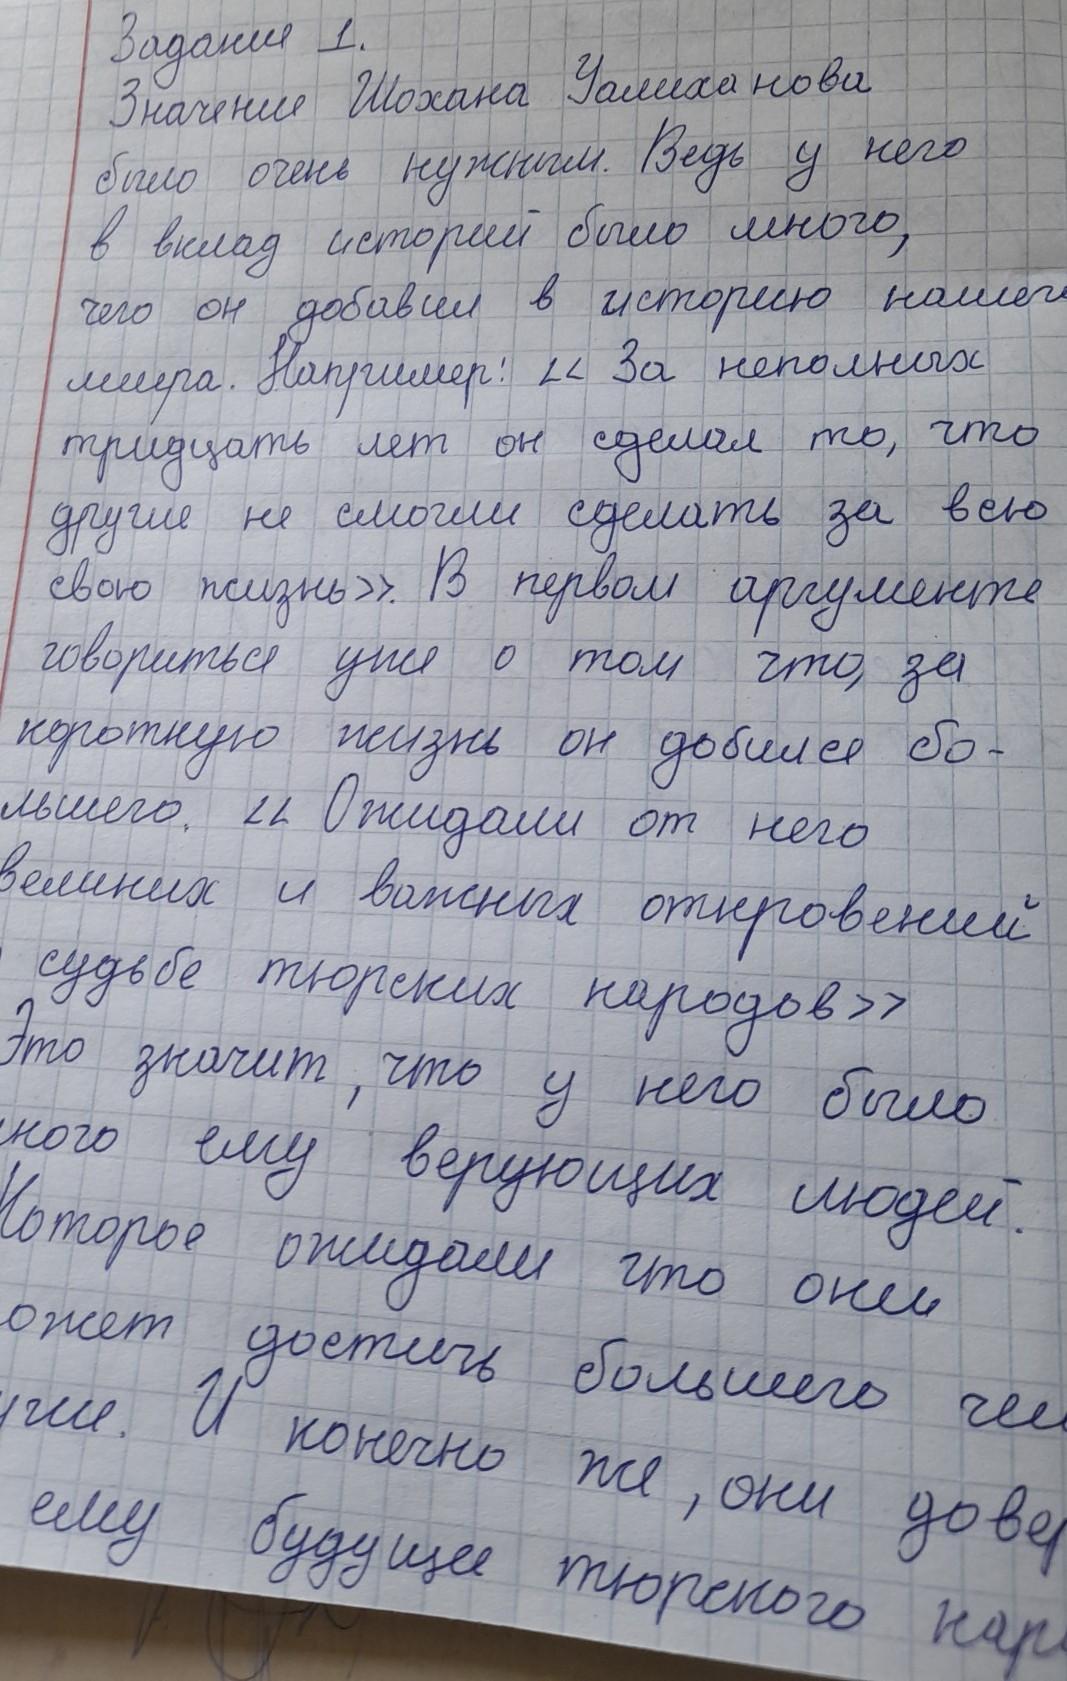 Задание 1.
Значение Шохана Уалиханова
было очень нужным. Ведь у него
в вклад историй было много,
чего он добавил в историю нашего
мира. Например: << За неполных
тридцать лет он сделал то, что
другие не смогли сделать за всю
свою жизнь>>. В первом аргументе
говориться уже о том что, за
короткую жизнь он добился бо-
льшего. << Ожидали от него
великих и важных откровений
судьбе тюрских народов>>
Это значит, что у него было
ного ему верующих людей.
Которое ожидали что они
ожет достичь большего чем
И конечно же, они довер
ему будущее тюрского наро